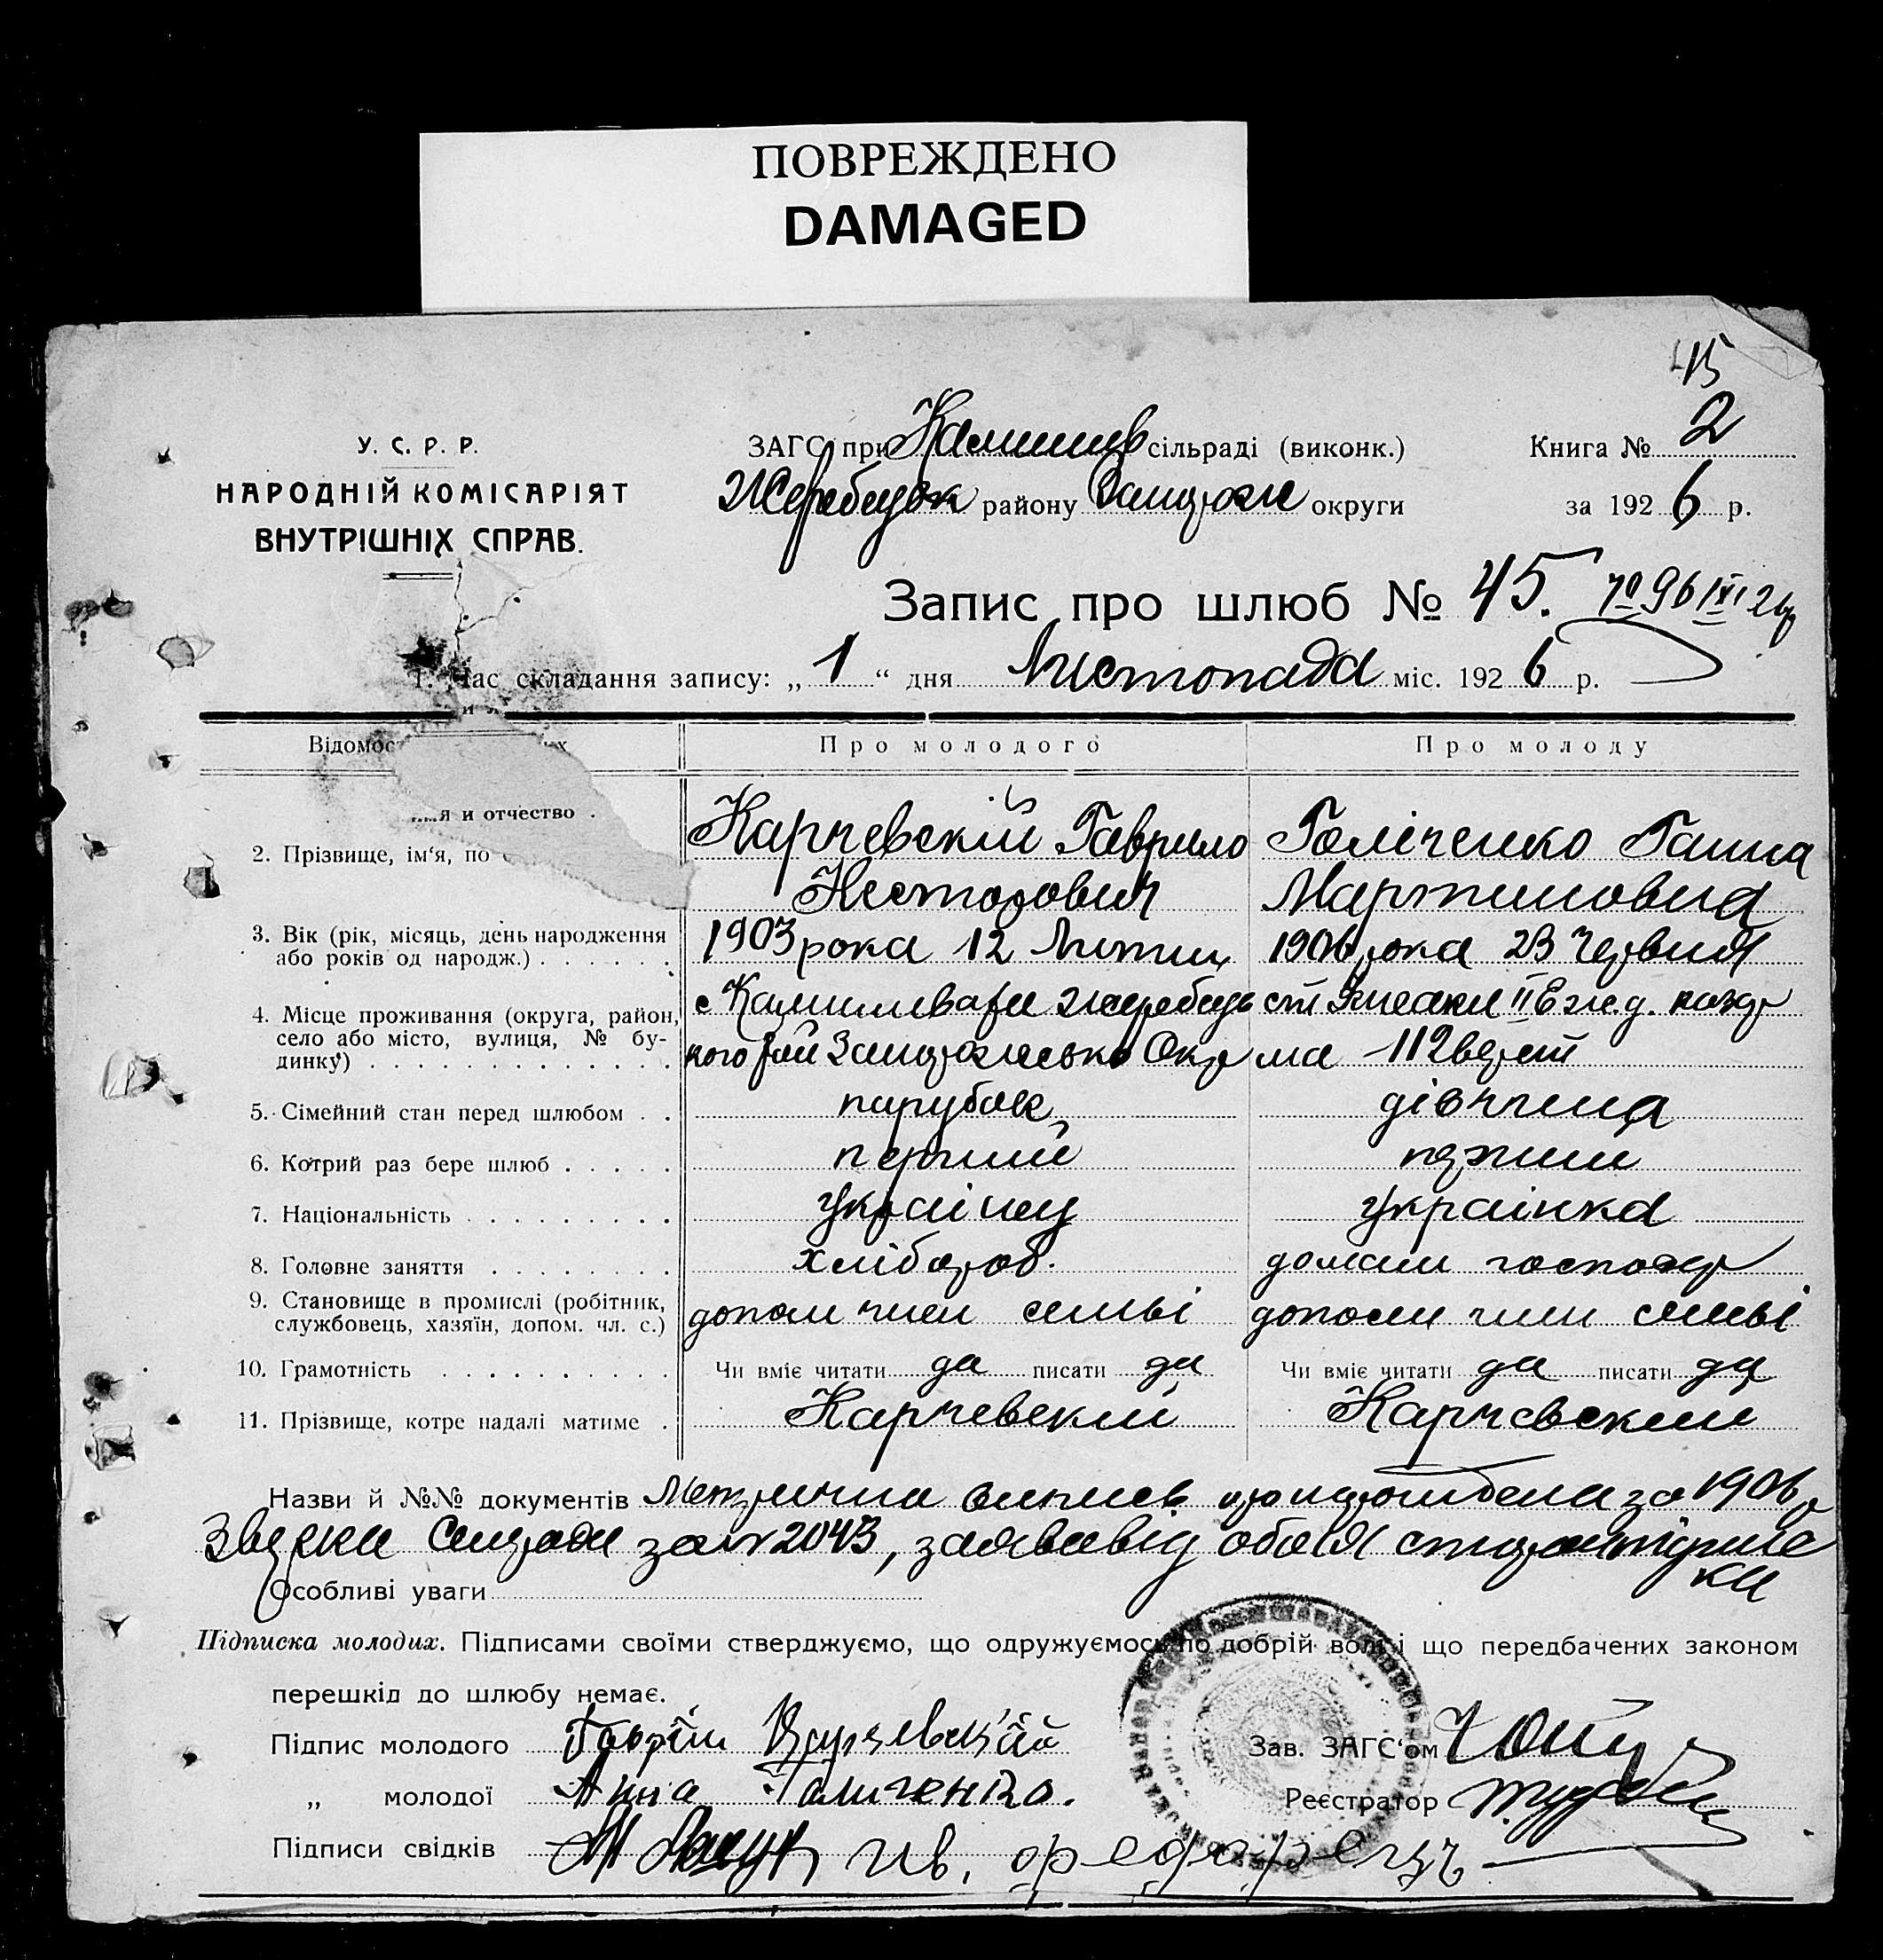 ПОВРЕЖДЕНО
DAMAGED
15
У. С. Р. Р.
НАРОДНІЙ КОМІСАРІЯТ
ВНУТРІШНІХ СПРАВ.
ЗАГС при Камишев сільраді (виконк.)
Жеребецьк району Запорож округи
Книга № 2
за 1926 р.
Запис про шлюб № 45.
1. Час складання запису: „ 1 “ дня Листопада міс. 1926 р.
Про молодого Про молоду
и отчество .
2. Прізвище, ім‘я, по Карчевский Гаврило Голіченко Ганна
Несторович Мартиновна
3. Вік (рік, місяць, день народження
або років од народж.) . . . . . . 1903 рока 12 1906 рока 23 Червня
4. Місце проживання (округа, район,
село або місто, вулиця, № бу-
динку) . . . . . . . . . . . . . .
с Камишеваха Жеребець
кого рай Запорожсько Окр
ст II Е ж.д.
112 верст
5. Сімейний стан перед шлюбом . . парубок дівчина
6. Котрий раз бере шлюб . . . . . перший перший
7. Національність . . . . . . . . . україниц українка
8. Головне заняття . . . . . . . . хлібороб. домаш господар
9. Становище в промислі (робітник,
службовець, хазяїн, допом. чл. с.) допом член семьі допом член семьі
10. Грамотність . . . . . . . . . . Чи вміє читати да писати да Чи вміє читати да писати да
11. Прізвище, котре надалі матиме . Карчевский Карчевский
Назви й №№ документів Метрична випись за 1906 р
за № 2043, заява від обоіх
Особливі уваги
Підписка молодих. Підписами своїми стверджуємо, що одружуємось по добрій волі і що передбачених законом
перешкід до шлюбу немає.
Підпис молодого Гаврііл Карчевскій
„ молодої Анна Голиченко.
Підписи свідків Ив. Федоренц
Зав. ЗАГС‘ом
Реєстратор